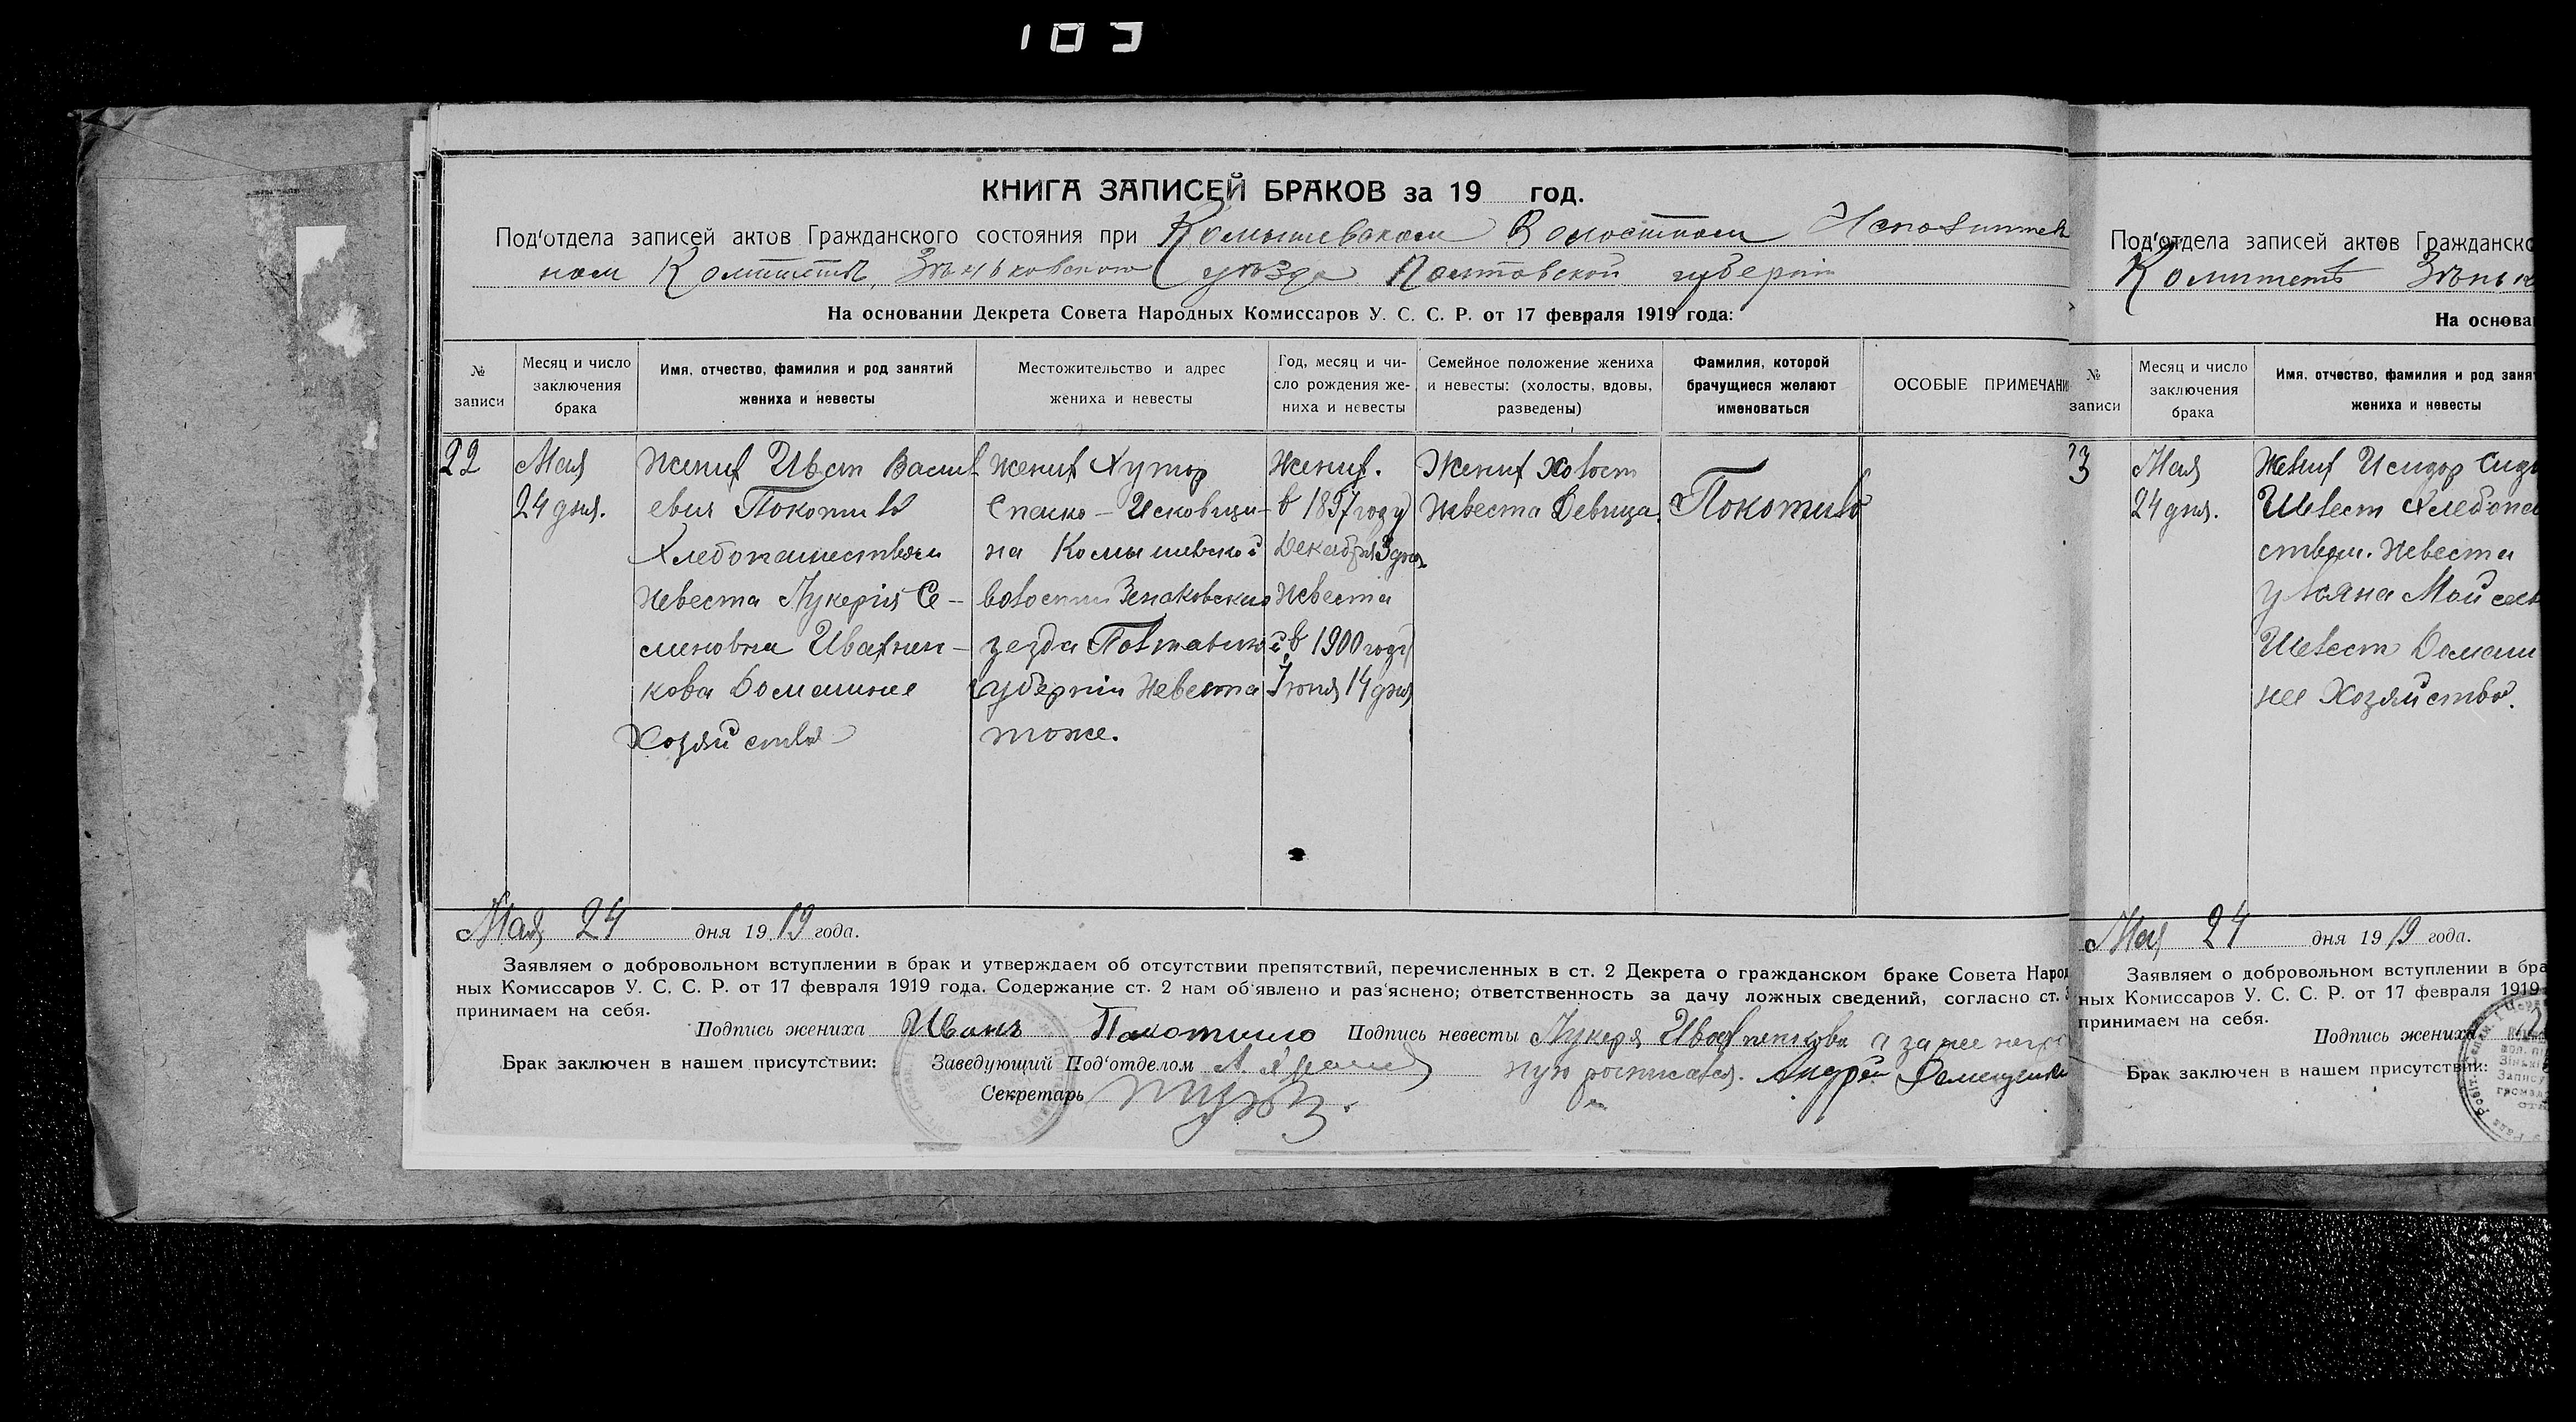 103
КНИГА ЗАПИСЕЙ БРАКОВ за 19 год.
Под'отдела записей актов Гражданского состояния при Комышевском Волостном Исполнител
ном Комитетѣ, Зѣньковского уѣзда Полтавской губернии
На основании Декрета Совета Народных Комиссаров У. С. С. Р. от 17 февраля 1919 года:
№ записи
Месяц и число заключения брака
Имя, отчество, фамилия и род занятий жениха и невесты
Местожительство и адрес жениха и невесты
Год, месяц и число рождения жениха и невесты
Семейное положение жениха и невесты: (холосты, вдовы, разведены)
Фамилия, которой брачущиеся желают именоваться
ОСОБЫЕ ПРИМЕЧАНИ
22
Мая
24 дня.
Жених Иван Васил
евич Покотило
Хлебопашеством
Невеста Лукерія Се-
меновна Ивахнен-
кова Домашнее
Хозяйство
Жених Хутор
Спаско-Исковщи-
на Комышевской
волости Зенковского
уезда Полтавской
губернии Невеста
тоже.
Жених.
в 1897 году
Декабря 3 дня
Невеста
в 1900 году
Июня 14 дня
Жених холост
Невеста Девица.
Покотило
Мая 24 дня 1919 года.
Заявляем о добровольном вступлении в брак и утверждаем об отсутствии препятствий, перечисленных в ст. 2 Декрета о гражданском браке Совета Народ
ных Комиссаров У. С. С. Р. от 17 февраля 1919 года. Содержание ст. 2 нам об'явлено и раз'яснено; ответственность за дачу ложных сведений, согласно ст.
принимаем на себя.
Подпись жениха Иванъ Покотило Подпись невесты Лукеря Ивахненкова а за нее негра
Брак заключен в нашем присутствии: Заведующий Под'отделом
ную росписался. Андрей
Секретарь
Под'отдела записей актов Гражданско
Комитетѣ Зѣньк
На основа
№ записи
Месяц и число заключения брака
Имя, отчество, фамилия и род занят
жениха и невесты
23
Мая
24 дня.
Жених Исидор Сидо
Шелест Хлебопаше
ством. Невеста
Ульяна Мойсее
Шелест Домаш
нее Хозяйство.
Мая 24 дня 1919 года.
Заявляем о добровольном вступлении в бра
ных Комиссаров У. С. С. Р. от 17 февраля 1919
принимаем на себя.
Подпись жениха
Брак заключен в нашем присутствии: